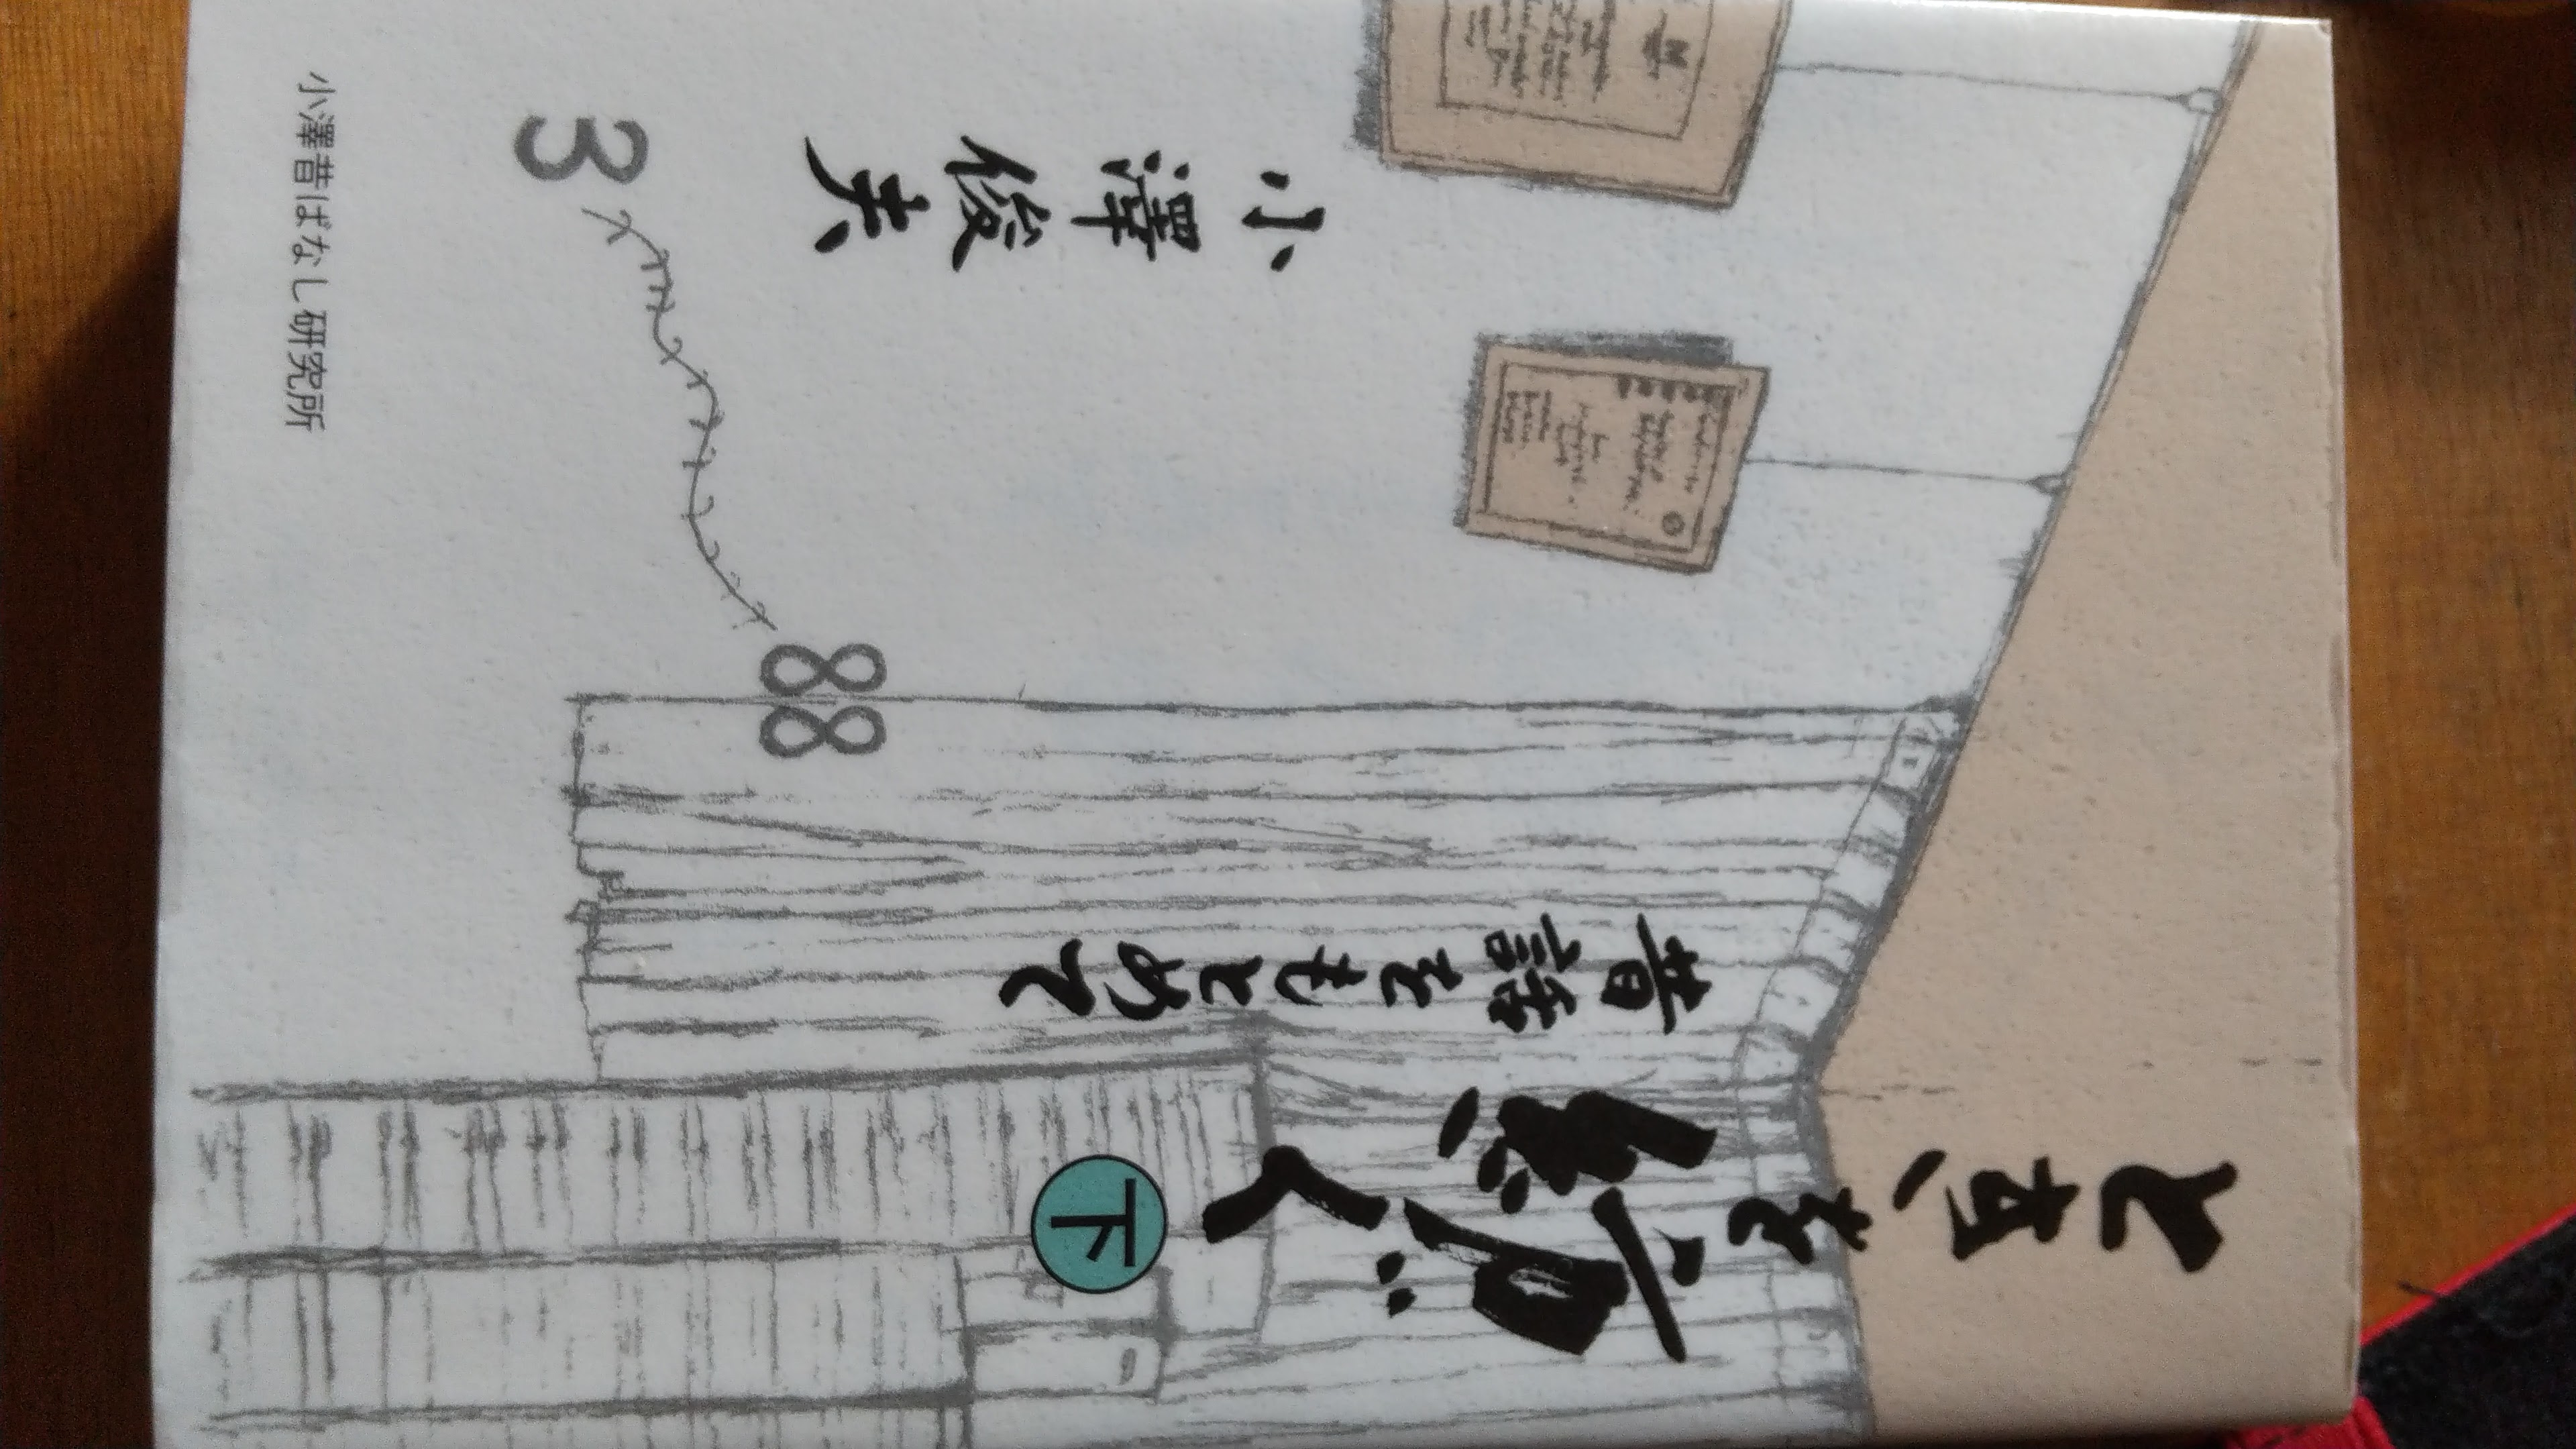 ときを紡ぐ
下
昔話をもとめて
小澤俊夫
3
88
小澤昔ばなし研究所